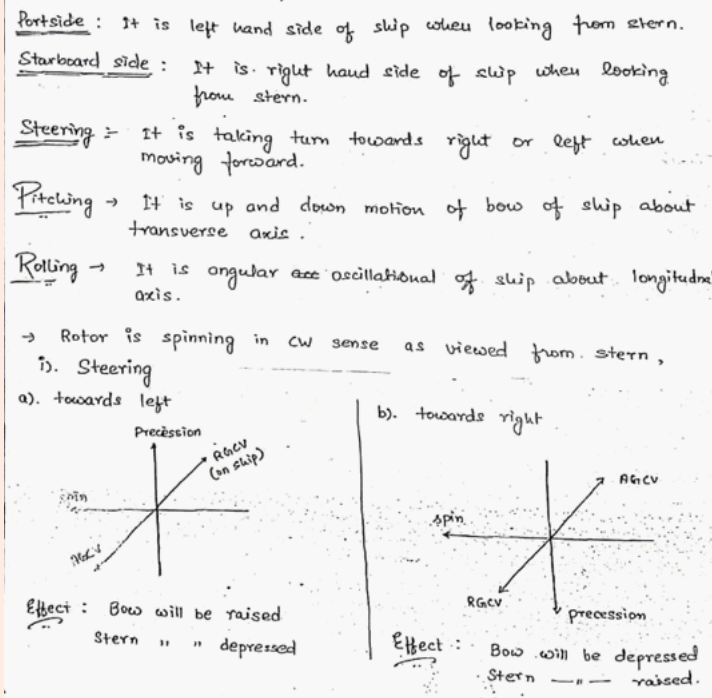 Portside : It is left hand side of ship when looking from stern.
Starboard side : It is right hand side of ship when looking
from stern.
Steering :- It is taking turn towards right or left when
moving forward.
Pitching → It is up and down motion of bow of ship about
transverse axis.
Rolling → It is angular oscillational of ship about longitudna
axis.
→ Rotor is spinning in CW sense as viewed from stern,
i). Steering
a). towards left
Precession
RGCV
(on ship)
spin
Effect : Bow will be raised
Stern " " depressed
b). towards right
AGCV
spin
RGCV
precession
Effect : Bow will be depressed
Stern —"— raised.